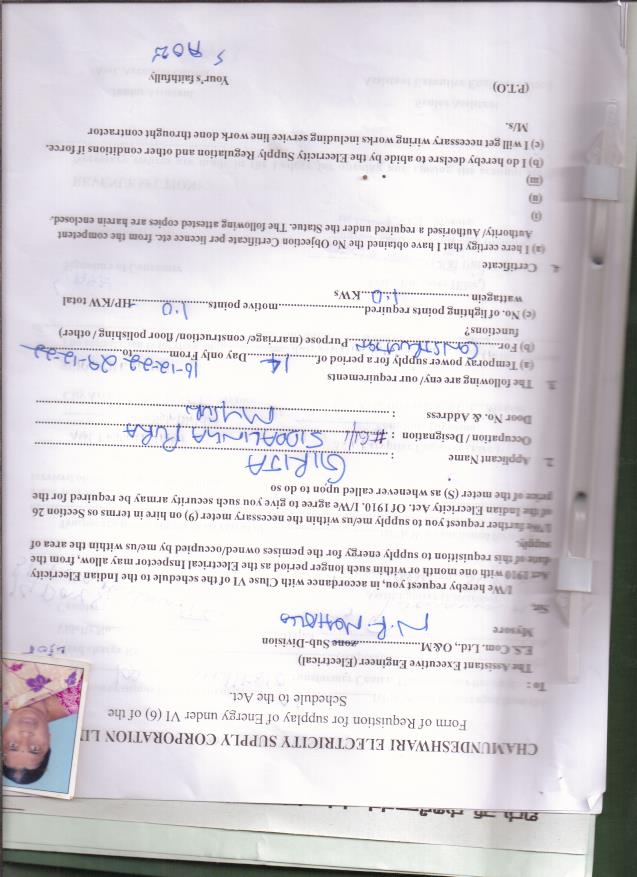 CHAMUNDESHWARI ELECTRICITY SUPPLY CORPORATION LI
Form of Requstion for supplay of Energy under VI (6) of the
Schedule to the Act.
To :
The Assistant Executive Engineer (Electrical)
E.S. Com. Ltd., O&M zone Sub-Division
N.R. MOHALLA
Mysore
Sir,
I/We hereby request you, in accordance with Cluse VI of the schedule to the Indian Elecricity
Act 1910 with one month or within such longer period as the Electrical Inspector may allow, from the
date of this requisition to supply energy for the pemises owned/occupied by me/us within the area of
supply.
I/We further request you to supply me/us within the necessary meter (9) on hire in terms os Secion 26
of the Indian Elecricity Act. Of 1910. I/We agree to give you such security armay be required for the
price of the meter (S) as whenever called upon to do so
2. Applicant Name : GIRIJA
Occupation / Designation : SIDDALINGA PURA
Door No. & Address : MYSORE
3. The following are any/ our requirements
(a) Temporay power supply for a period of 14 Day only From 16-12-22 to 29-12-22
(b) For CONSTRUCTION Purpose (marriage/ construction/ floor polishing / other)
functions?
(c) No. of lighting points required motive points 1.0 HP/KW total
wattagein 1.0 KWs
4. Certificate
(a) I here certigy that I have obtained the No Objection Certificate per licence etc. from the competent
Authority/ Authorised a required under the Statue. The following attested copies are harein enclosed.
(i)
(ii)
(iii)
(b) I do hereby declsre to abide by the Elecricity Supply Regulation and other conditions if force.
(c) I will get necessary wiring works including service line work done throught contractor
M/s.
(P.T.O)
Your's faithfully